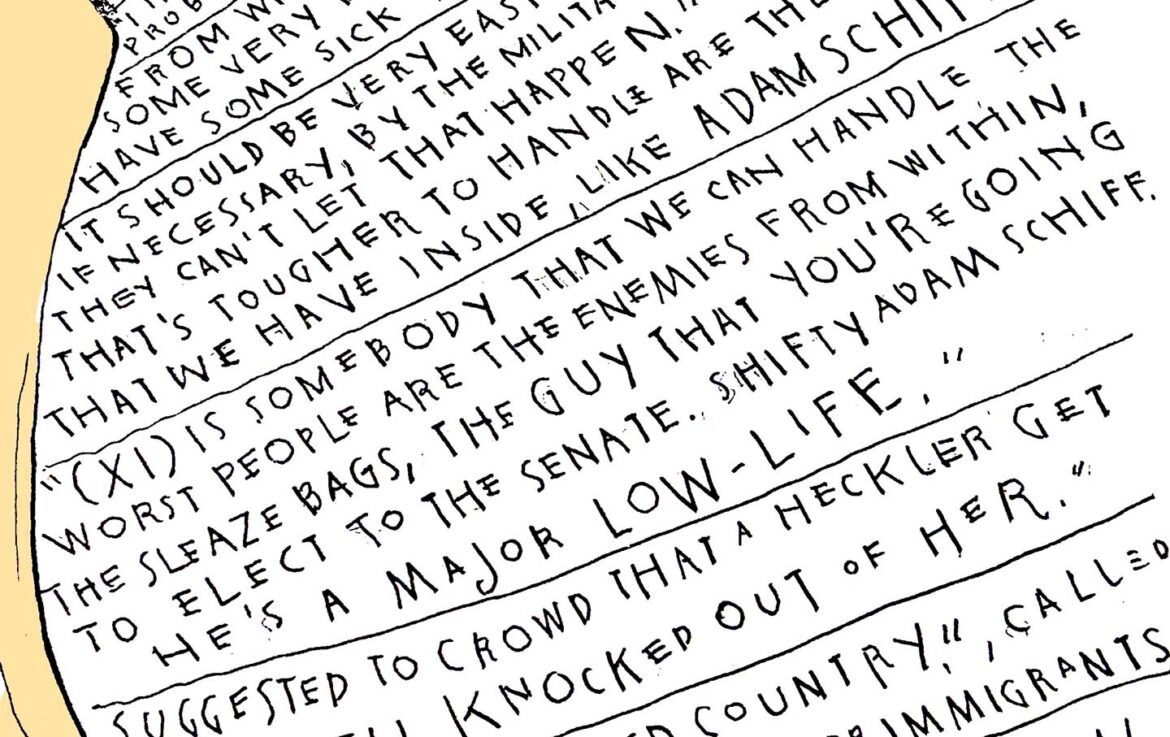 PROB
FROM W
SOME VERY
HAVE SOME SICK
IT SHOULD BE VERY EAS
IF NECESSARY, BY THE MILITA
THEY CAN'T LET THAT HAPPEN."
THAT'S TOUGHER TO HANDLE ARE THE
THAT WE HAVE INSIDE, LIKE ADAM SCHIF
"(XI) IS SOMEBODY THAT WE CAN HANDLE THE
WORST PEOPLE ARE THE ENEMIES FROM WITHIN,
THE SLEAZE BAGS, THE GUY THAT YOU'RE GOING
TO ELECT TO THE SENATE. SHIFTY ADAM SCHIFF.
HE'S A MAJOR LOW-LIFE."
SUGGESTED TO CROWD THAT A HECKLER GET
KNOCKED OUT OF HER."
ED COUNTRY!", CALLED
IMMIGRANTS